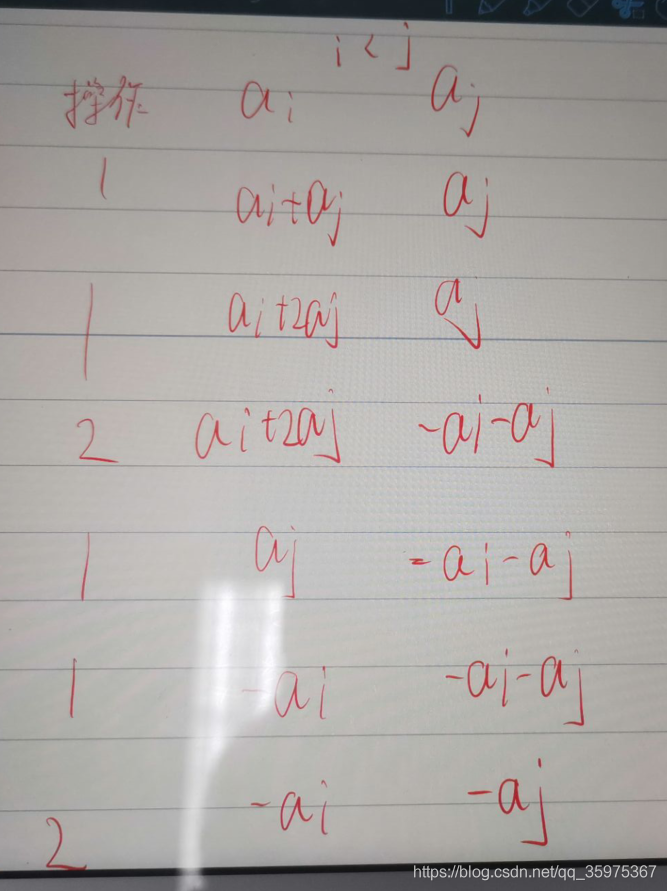 i < j
操作 ai aj
1 ai+aj aj
1 ai+2aj aj
2 ai+2aj -ai-aj
1 aj -ai-aj
1 -ai -ai-aj
2 -ai -aj
https://blog.csdn.net/qq_35975367